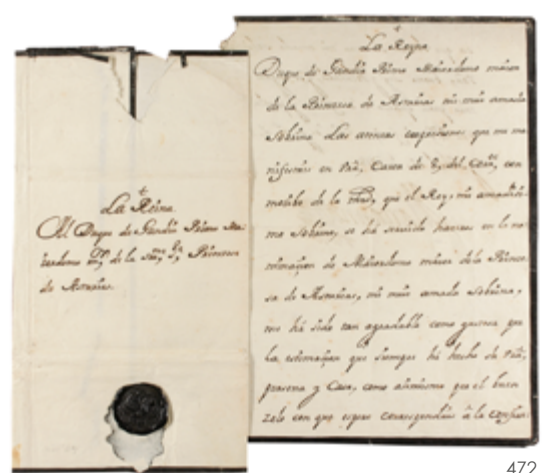 La Reina.
Al Duque de Gandia Primo Ma-
de la Princesa
de Asturias.
La Reyna
Duque de Gandia Primo Maiordomo maior
de la Princesa de Asturias mi mui amada
Sobrina Las atentas expresiones que me ma-
nifestais en Carta de 8,, del con
motibo de la que el Rey, mi amadisi-
mo Sobrino, se há servido haceros en la no-
minazion de Maiordomo maior de la Prince-
sa de Asturias, mi mui amada Sobrina,
me há sido tan agradable como gustosa por
la estimazion que siempre hé hecho de
persona y Casa, como asimismo que el buen
zelo con que espero â la confian-
472